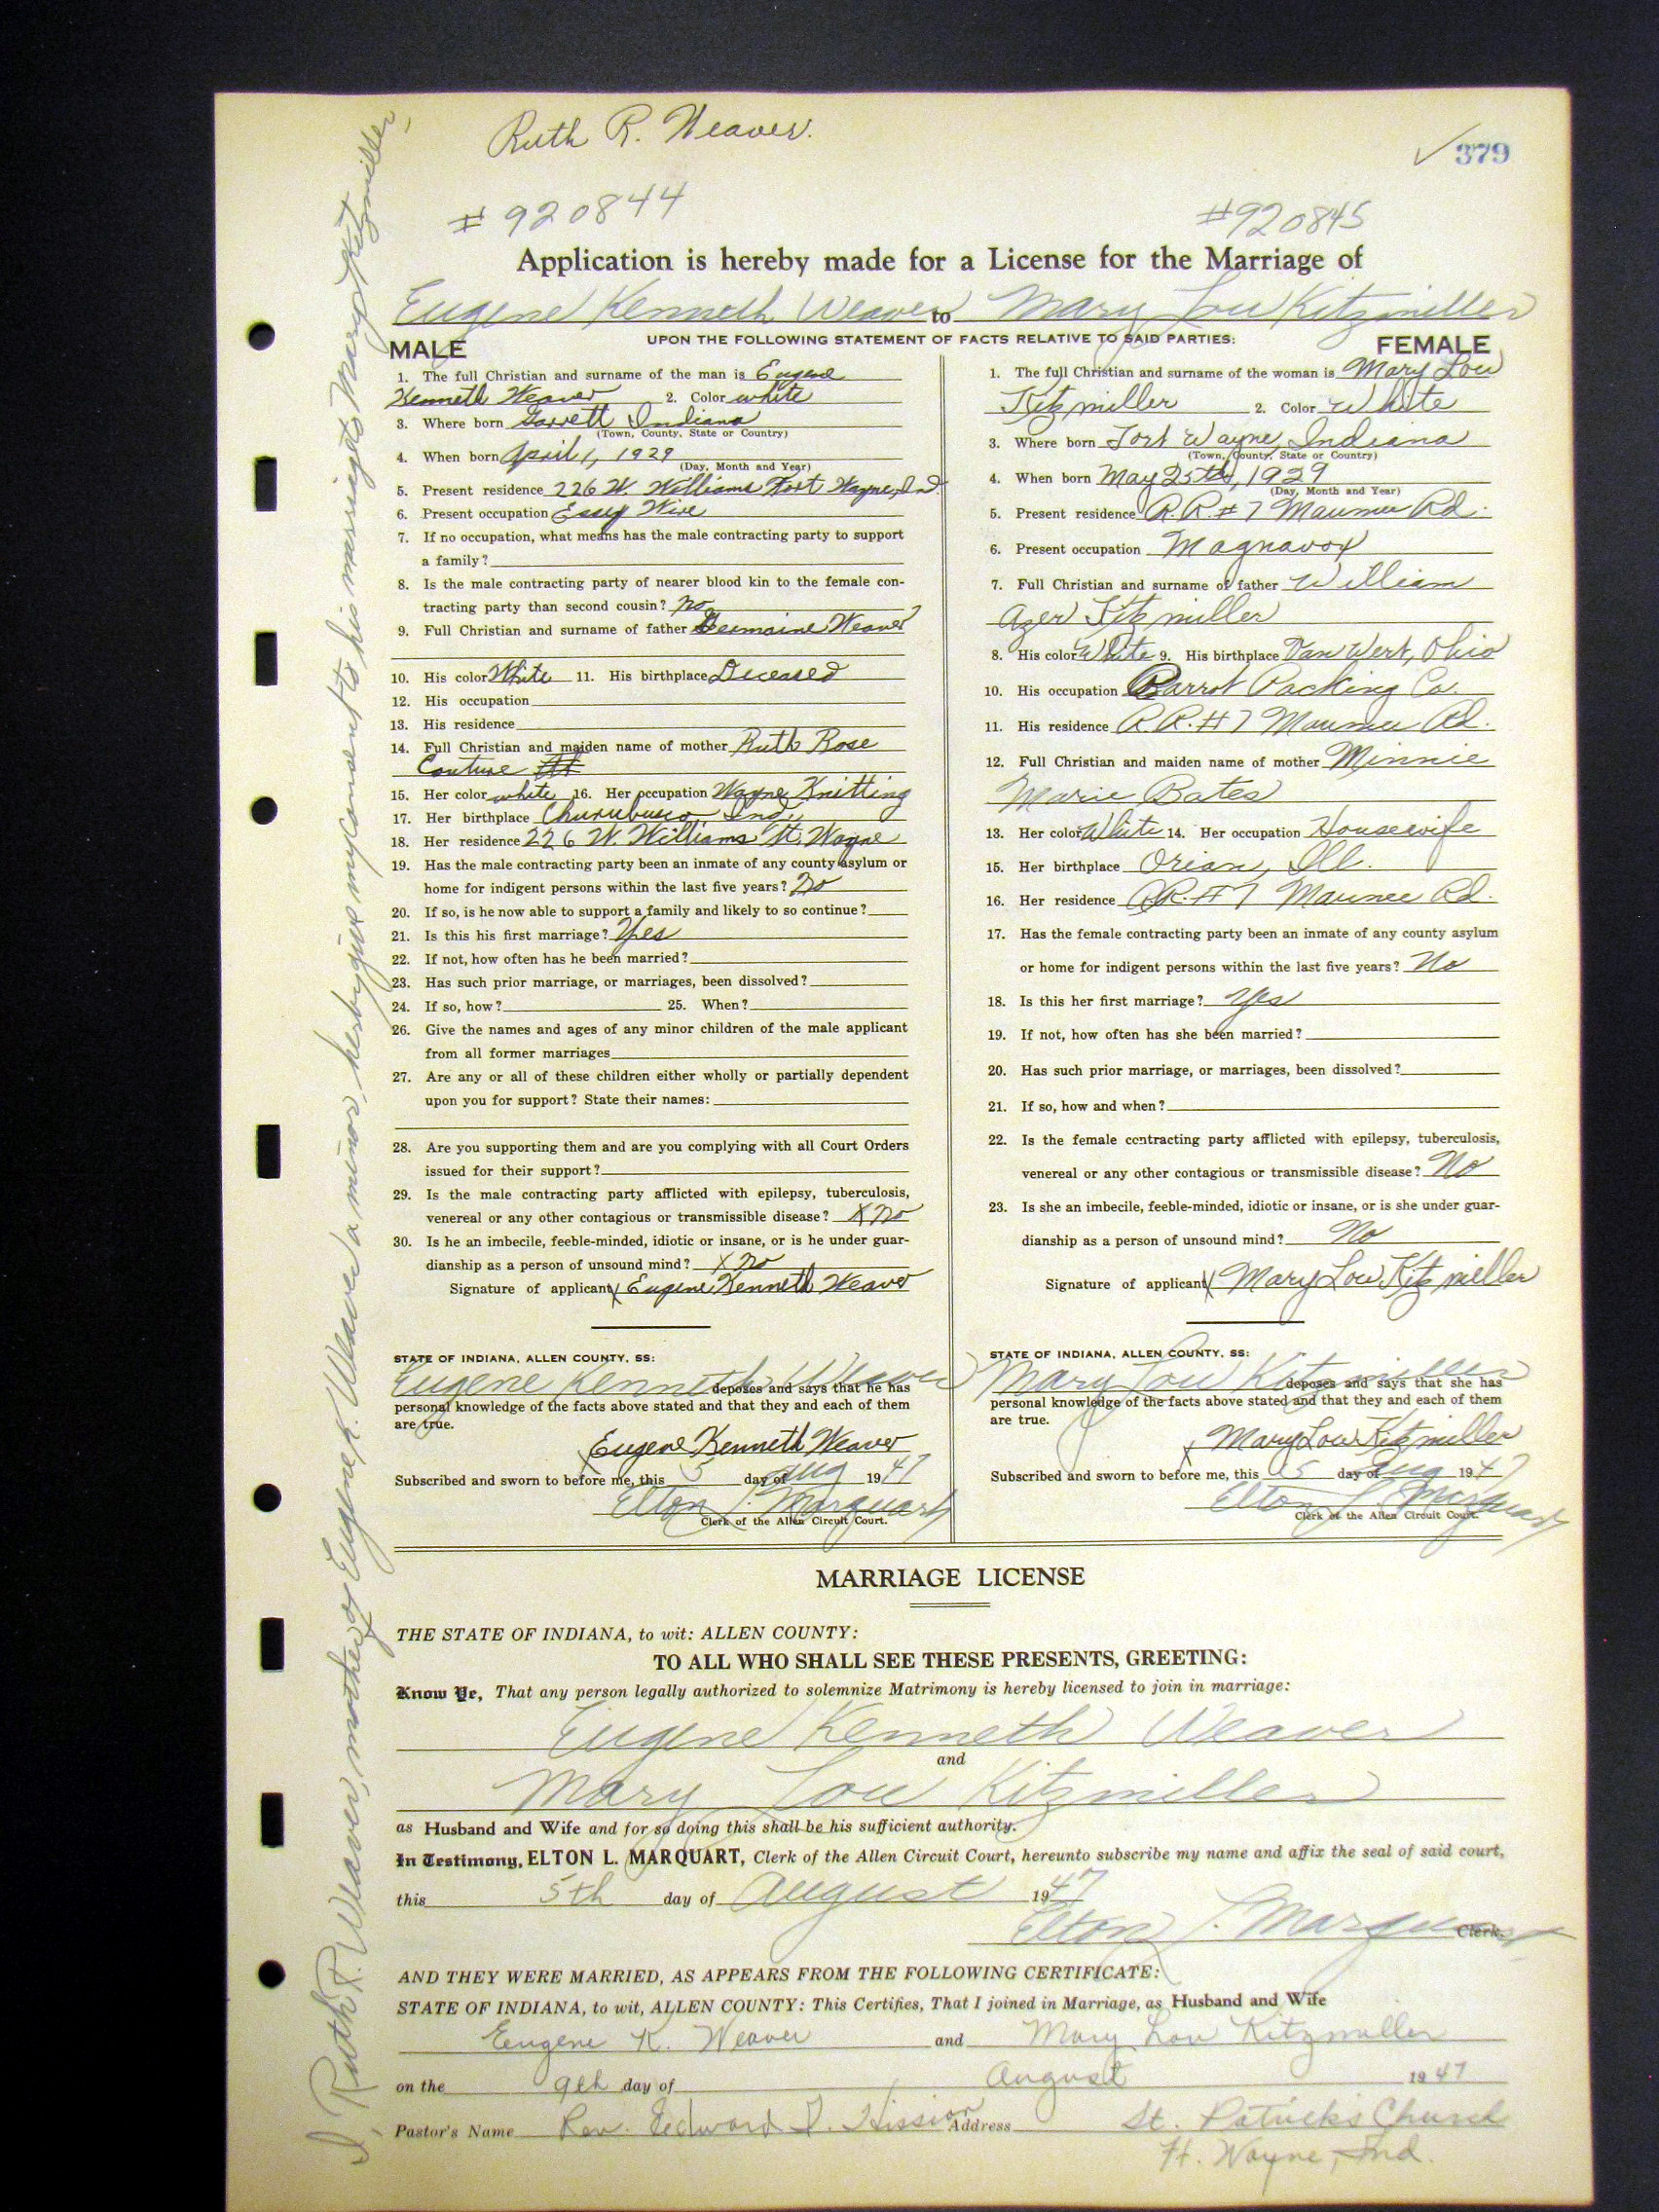 Ruth R. Weaver.
✓ 379
# 920844
#920845
Application is hereby made for a License for the Marriage of
Eugene Kenneth Weaver to Mary Lou Kitzmiller
UPON THE FOLLOWING STATEMENT OF FACTS RELATIVE TO SAID PARTIES:
MALE
1. The full Christian and surname of the man is Eugene
Kenneth Weaver 2. Color white
3. Where born Garrett Indiana
(Town, County, State or Country)
4. When born April 1, 1929
(Day, Month and Year)
5. Present residence 226 W. Williams Fort Wayne, Ind.
6. Present occupation Essex Wire
7. If no occupation, what means has the male contracting party to support
a family?
8. Is the male contracting party of nearer blood kin to the female con-
tracting party than second cousin? No
9. Full Christian and surname of father Germaine Weaver
10. His color White 11. His birthplace Deceased
12. His occupation
13. His residence
14. Full Christian and maiden name of mother Ruth Rose
Couture
15. Her color white 16. Her occupation Wayne Knitting
17. Her birthplace Churubusco, Ind.
18. Her residence 226 W. Williams Ft. Wayne
19. Has the male contracting party been an inmate of any county asylum or
home for indigent persons within the last five years? No
20. If so, is he now able to support a family and likely to so continue?
21. Is this his first marriage? Yes
22. If not, how often has he been married?
23. Has such prior marriage, or marriages, been dissolved?
24. If so, how? 25. When?
26. Give the names and ages of any minor children of the male applicant
from all former marriages
27. Are any or all of these children either wholly or partially dependent
upon you for support? State their names:
28. Are you supporting them and are you complying with all Court Orders
issued for their support?
29. Is the male contracting party afflicted with epilepsy, tuberculosis,
venereal or any other contagious or transmissible disease? X No
30. Is he an imbecile, feeble-minded, idiotic or insane, or is he under guar-
dianship as a person of unsound mind? X No
Signature of applicant X Eugene Kenneth Weaver
STATE OF INDIANA, ALLEN COUNTY, SS:
Eugene Kenneth Weaver deposes and says that he has
personal knowledge of the facts above stated and that they and each of them
are true.
X Eugene Kenneth Weaver
Subscribed and sworn to before me, this 5 day of Aug 1947
Elton L. Marquart
Clerk of the Allen Circuit Court.
FEMALE
1. The full Christian and surname of the woman is Mary Lou
Kitzmiller 2. Color White
3. Where born Fort Wayne, Indiana
(Town, County, State or Country)
4. When born May 25th, 1929
(Day, Month and Year)
5. Present residence R.R. #7 Maumee Rd.
6. Present occupation Magnavox
7. Full Christian and surname of father William
Azer Kitzmiller
8. His color White 9. His birthplace Van Wert, Ohio
10. His occupation Parrot Packing Co.
11. His residence R.R. #7 Maumee Rd.
12. Full Christian and maiden name of mother Minnie
Marie Bates
13. Her color White 14. Her occupation Housewife
15. Her birthplace Orian, Ill.
16. Her residence R.R. #7 Maumee Rd.
17. Has the female contracting party been an inmate of any county asylum
or home for indigent persons within the last five years? No
18. Is this her first marriage? Yes
19. If not, how often has she been married?
20. Has such prior marriage, or marriages, been dissolved?
21. If so, how and when?
22. Is the female contracting party afflicted with epilepsy, tuberculosis,
venereal or any other contagious or transmissible disease? No
23. Is she an imbecile, feeble-minded, idiotic or insane, or is she under guar-
dianship as a person of unsound mind? No
Signature of applicant X Mary Lou Kitzmiller
STATE OF INDIANA, ALLEN COUNTY, SS:
Mary Lou Kitzmiller deposes and says that she has
personal knowledge of the facts above stated and that they and each of them
are true.
X Mary Lou Kitzmiller
Subscribed and sworn to before me, this 5 day of Aug 1947
Elton L. Marquart
Clerk of the Allen Circuit Court.
MARRIAGE LICENSE
THE STATE OF INDIANA, to wit: ALLEN COUNTY:
TO ALL WHO SHALL SEE THESE PRESENTS, GREETING:
Know Ye, That any person legally authorized to solemnize Matrimony is hereby licensed to join in marriage:
Eugene Kenneth Weaver
and
Mary Lou Kitzmiller
as Husband and Wife and for so doing this shall be his sufficient authority.
In Testimony, ELTON L. MARQUART, Clerk of the Allen Circuit Court, hereunto subscribe my name and affix the seal of said court,
this 5th day of August 1947
Elton L. Marquart Clerk.
AND THEY WERE MARRIED, AS APPEARS FROM THE FOLLOWING CERTIFICATE:
STATE OF INDIANA, to wit, ALLEN COUNTY: This Certifies, That I joined in Marriage, as Husband and Wife
Eugene K. Weaver and Mary Lou Kitzmiller
on the 9th day of August 1947
Pastor's Name Rev. Edward J. Hession Address St. Patrick's Church
Ft. Wayne, Ind.
I, Ruth R. Weaver, mother of Eugene K. Weaver a minor, herby give my consent to his marriage to Mary Kitzmiller,